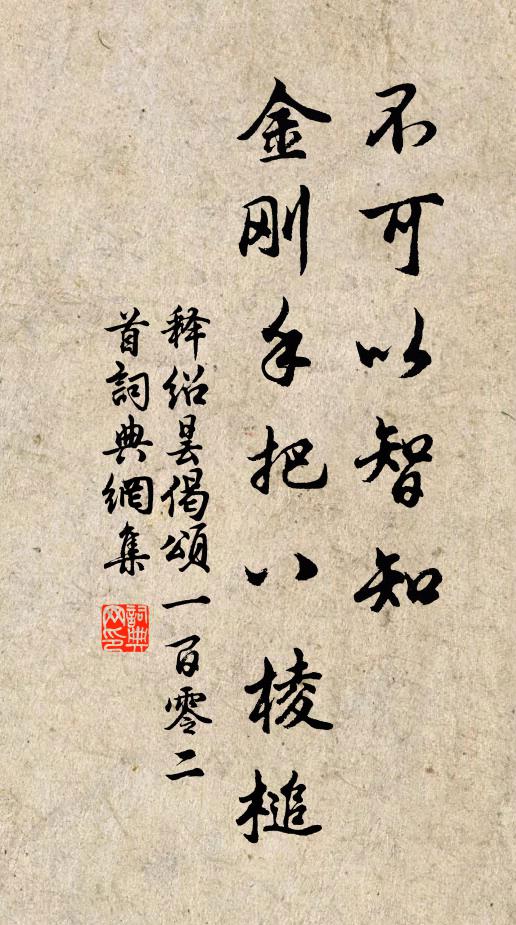 不可以智知
金刚手把八棱槌
释绍昙偈頌一百零二
首詞典網集
詞典
网印